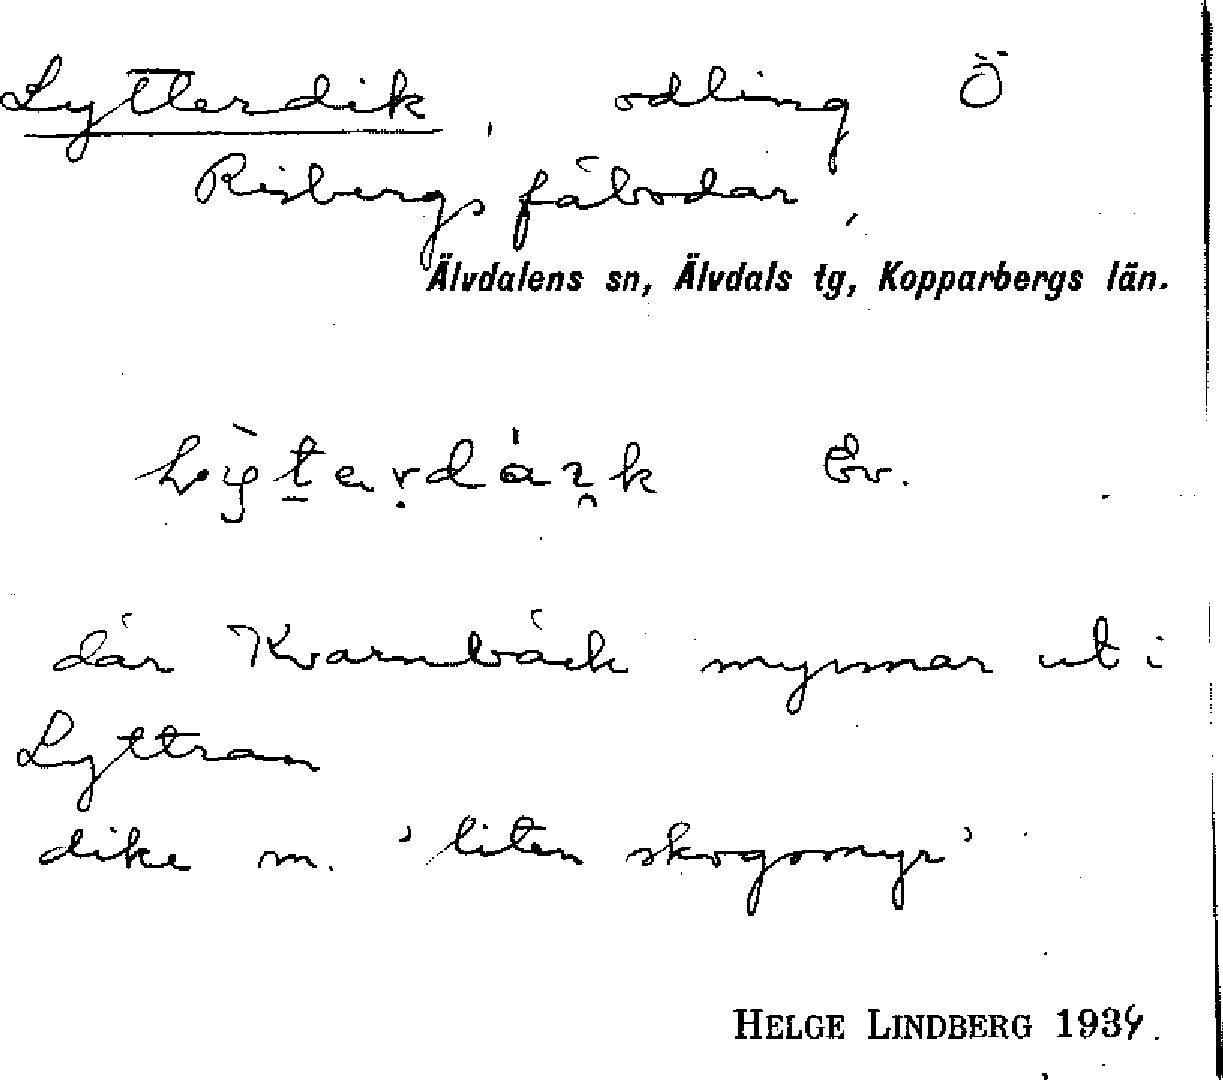 Lytterdik, odling Ö
Risbergs fäbodar,
Älvdalens sn, Älvdals tg, Kopparbergs län.
Ev.
där Kvarnbäck mynnar ut i
Lyttran
dike m. 'liten skogsmyr'
HELGE LINDBERG